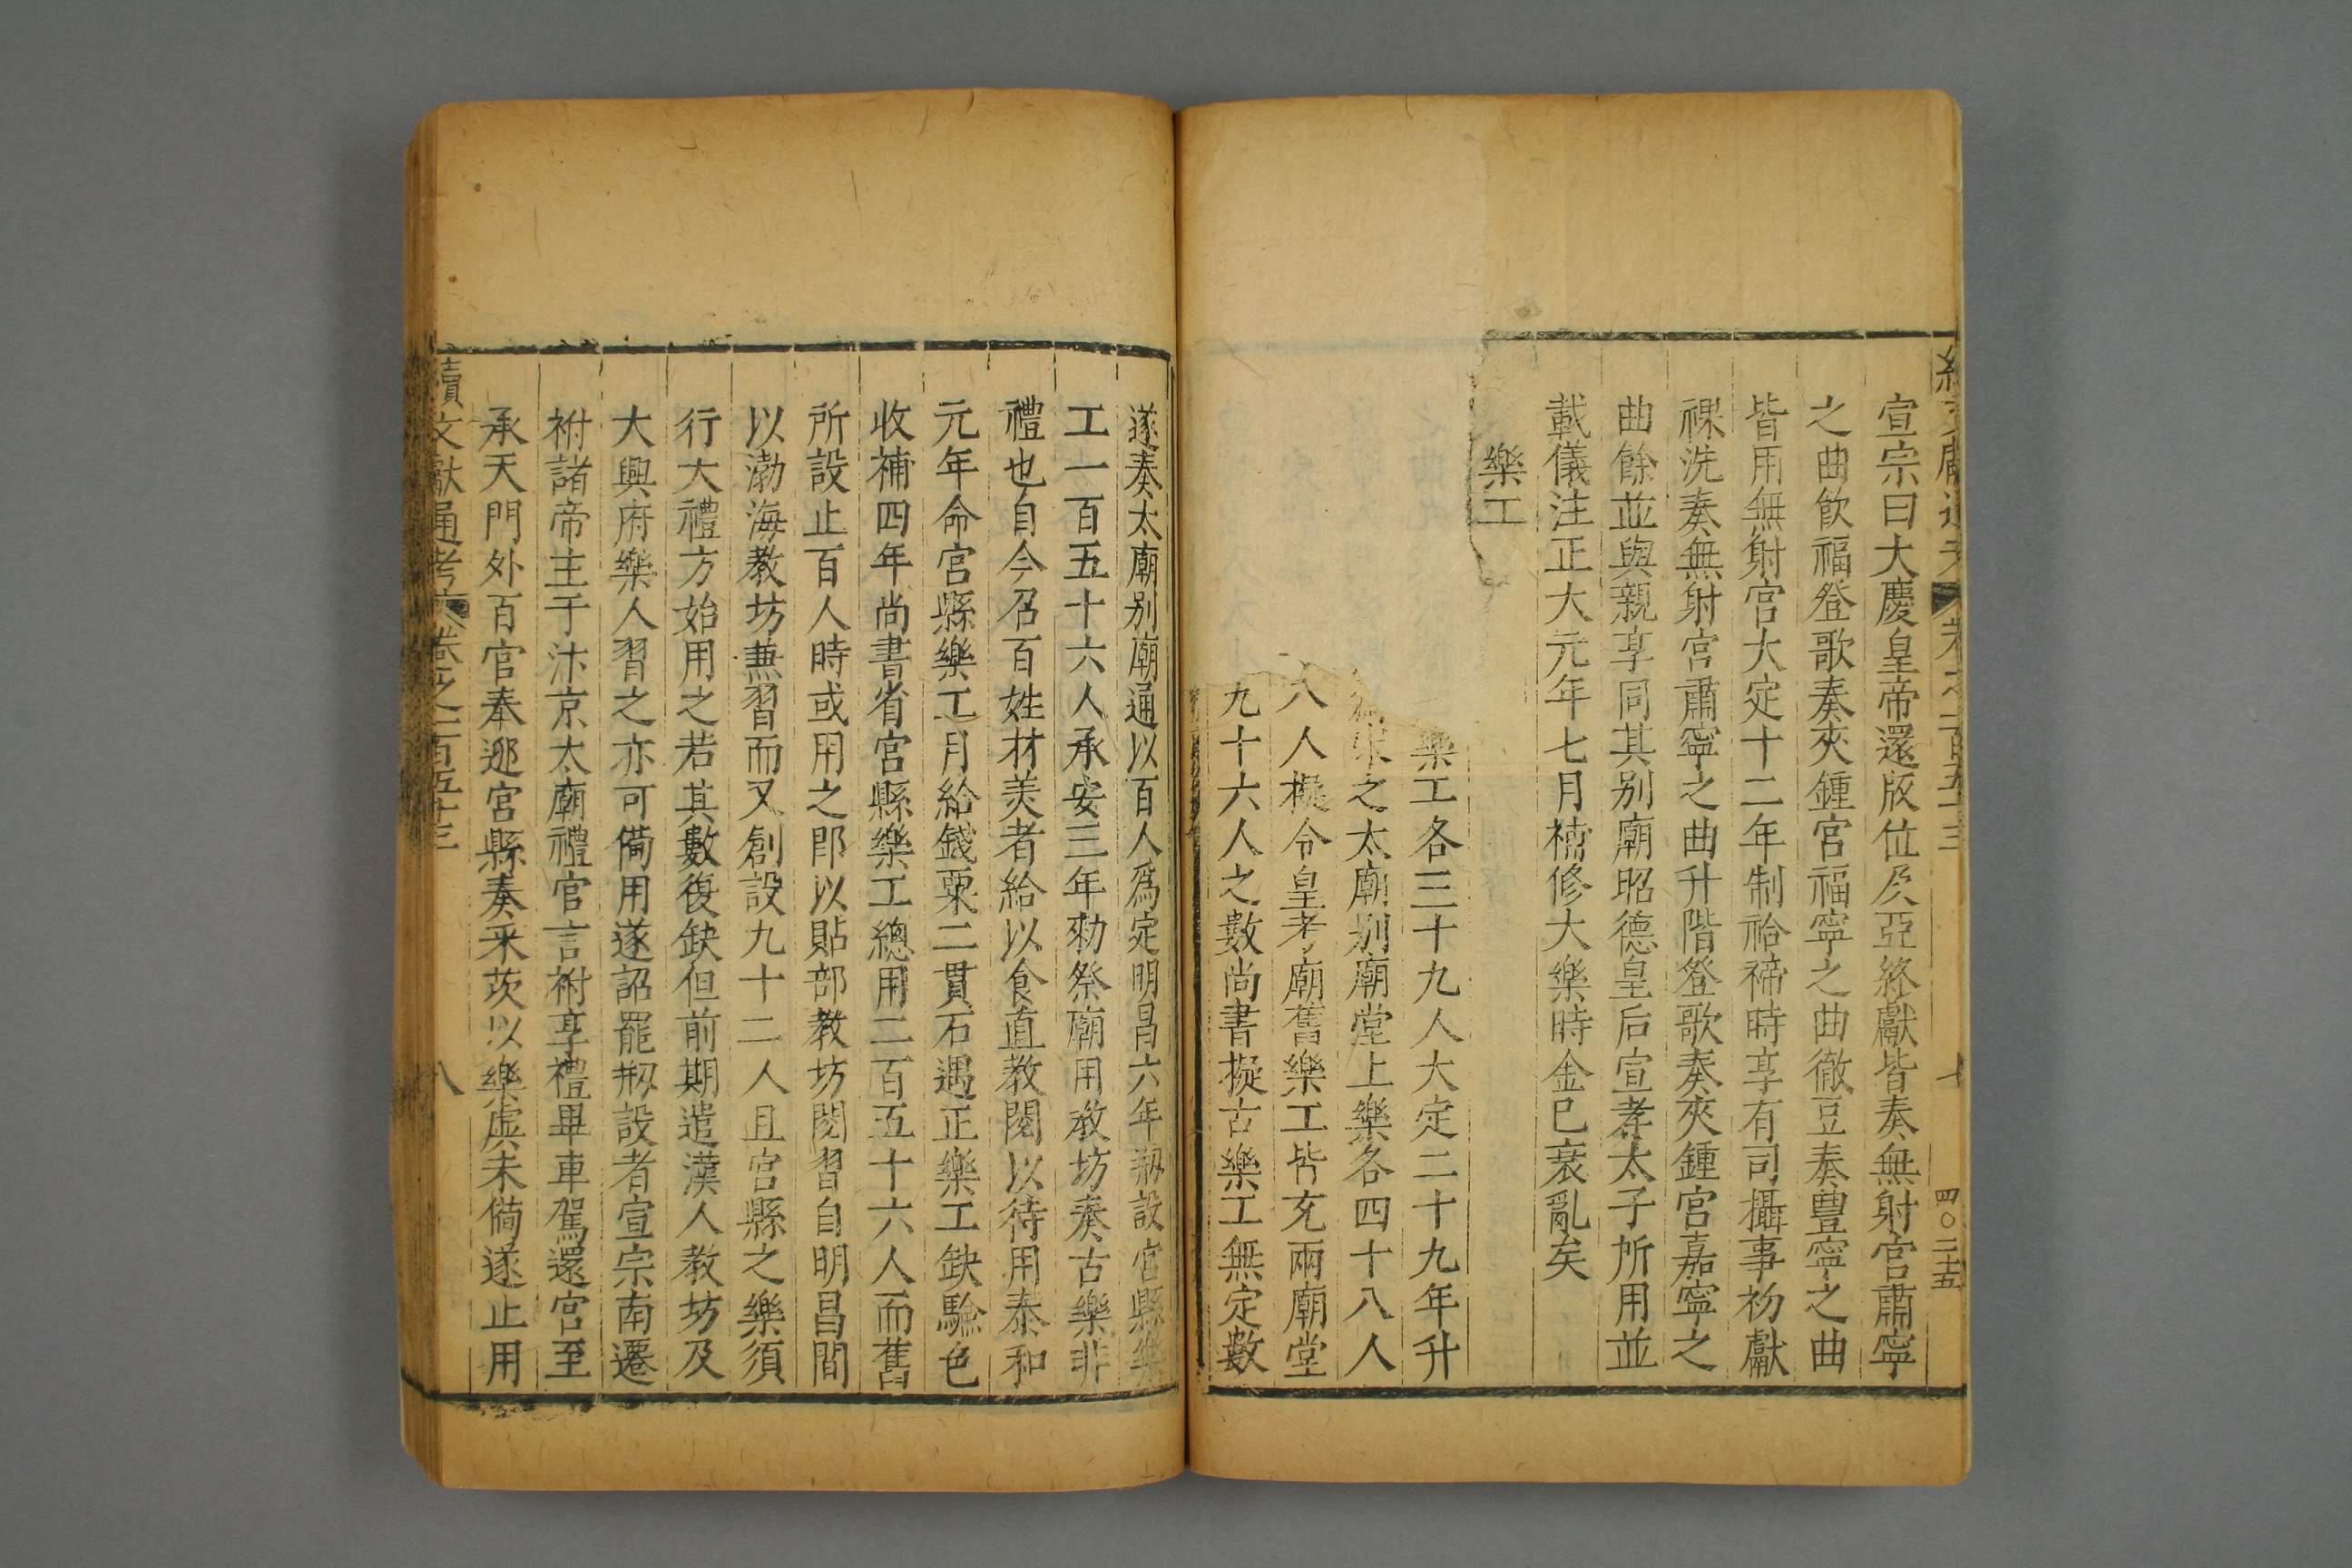 文獻通考 卷之一百五十三 七 四〇二十五
宣宗曰大慶皇帝還版位及亞終獻皆奏無射宮肅寧
之曲飲福登歌奏夾鍾宮福寧之曲徹豆奏豊寧之曲
皆用無射宮大定十二年制祫禘時享有司攝事初獻
祼洗奏無射宮肅寧之曲升階登歌奏夾鍾宮嘉寧之
曲餘並與親享同其别廟昭德皇后宣孝太子所用並
載儀注正大元年七月補修大樂時金已衰亂矣
樂工
樂工各三十九人大定二十九年升
之太廟别廟堂上樂各四十八人
八人擬令皇考廟舊樂工皆充兩廟堂
九十六人之數尚書擬古樂工無定數
遂奏太廟别廟通以百人爲定明昌六年剏設宮縣樂
工一百五十六人承安三年勑祭廟用教坊奏古樂非
禮也自今召百姓材美者給以食直教閱以待用泰和
元年命宮縣樂工月給錢粟二貫石遇正樂工缺驗色
收補四年尚書省宮縣樂工總用二百五十六人而舊
所設止百人時或用之郎以貼部教坊閱習自明昌間
以渤海教坊兼習而又創設九十二人且宮縣之樂須
行大禮方始用之若其數復缺但前期遣漢人教坊及
大興府樂人習之亦可備用遂詔罷剏設者宣宗南遷
祔諸帝主于汴京太廟禮官言祔享禮畢車駕還宮至
承天門外百官奉迎宮縣奏采茨以樂虡未備遂止用
續文獻通考 卷之一百五十三 八